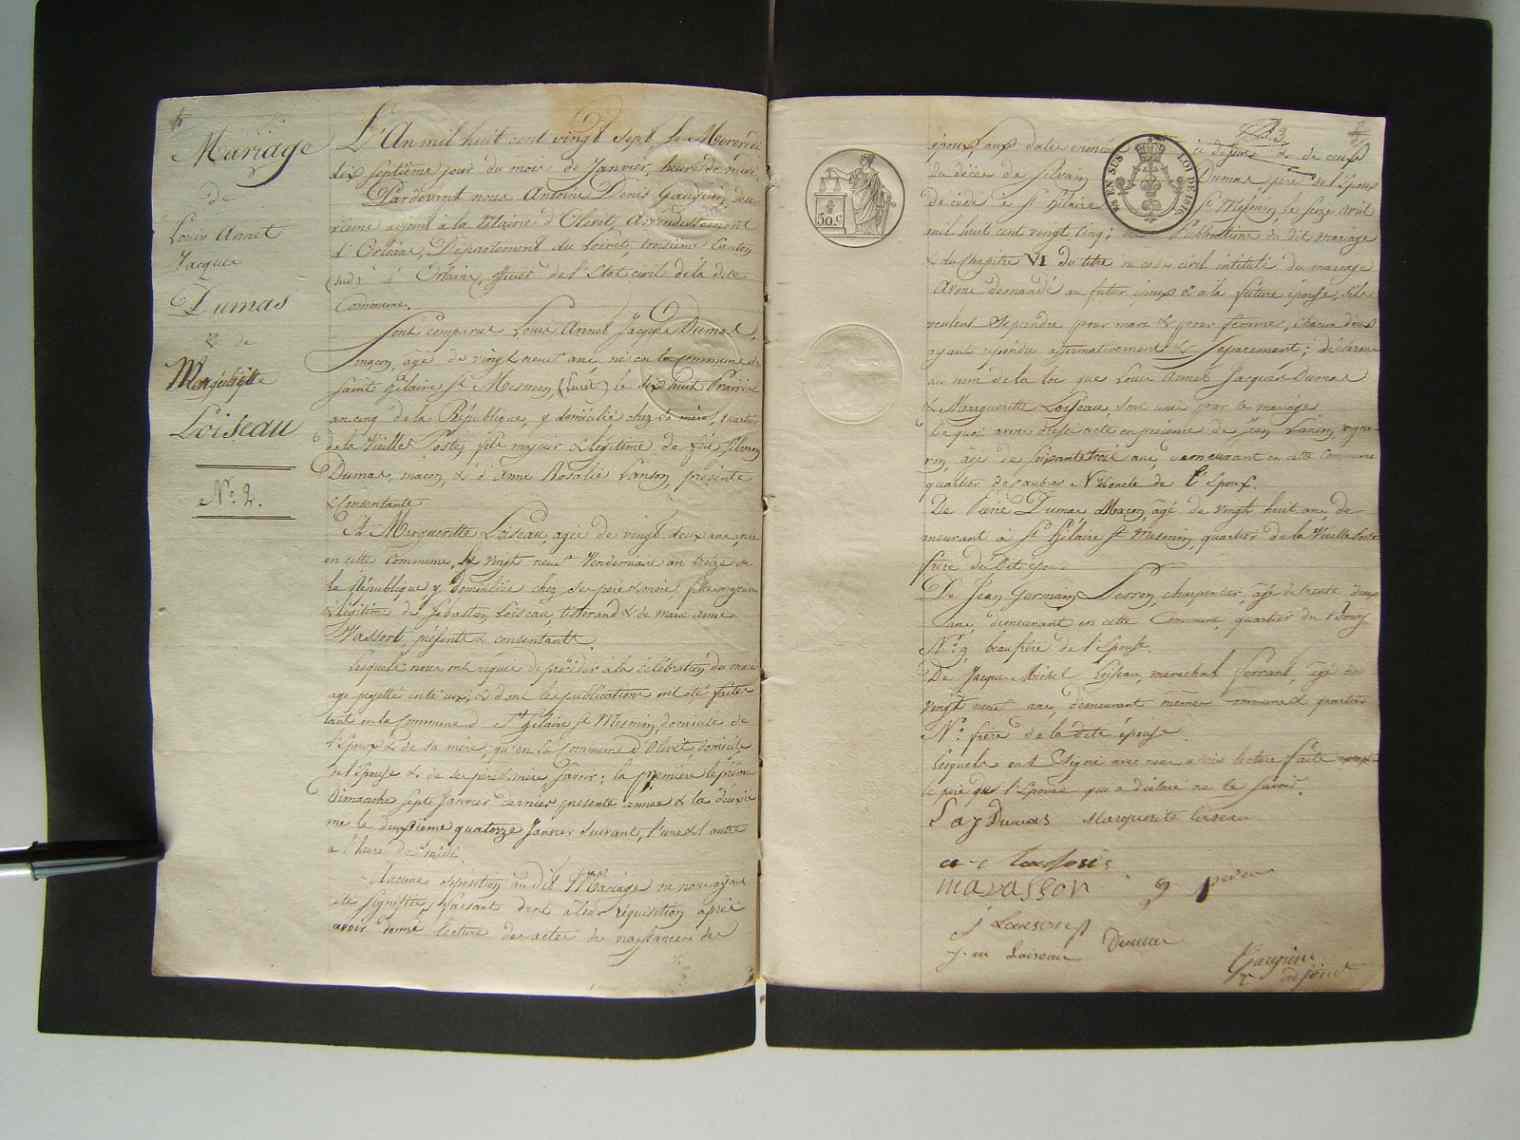 Mariage
de
Louis Annet
Jacques
Dumas
& de
Marguerite
Loiseau
N.° 2.
L'An mil huit cent vingt sept, le Mercredi
dix septième jour du mois de Janvier, heure de midi
Pardevant nous Antoine Denis Gaugrin, deu
xieme adjoint à la Mairie d'Olivet, Arrondissement
d'Orléans, Département du Loiret, troisième Canton
(sud) d'Orléans, officier de l'Etat civil de la dite
Commune.
Sont comparus Louis Annet Jacques Dumas,
maçon, agé de vingt neuf ans, né en la commune de
saint hilaire St Mesmin, (Loiret) le dix huit Prairial
an cinq de la République, y domicilié chez sa mère, quartier
de la Vieille Poste, fils majeur & légitime de feu Silvain
Dumas, maçon, & d'Anne Rosalie Lanson, présente
& consentante
Et Marguerite Loiseau, agée de vingt deux ans, née
en cette commune, le vingt neuf Vendemiaire an treize de
la République y domiciliée chez ses père & mère, fille majeure
& légitime de Sébastien Loiseau, & de Marie Anne
présents & consentants.
Lesquels nous ont requis de procéder à la célébration du mari
age projetté entre eux, & dont les publications ont été faites
tant en la commune de St hilaire St Mesmin, domicile de
l'Epoux & de sa mère, qu'en la commune d'Olivet, domicile
de l'Epouse & de ses père & mère, savoir: la première le
Dimanche sept Janvier dernier présente année & la deuxiè
me le quatorze Janvier suivant, l'une & l'autre
à l'heure de midi
Aucune opposition au dit Mariage ne nous ayant
été signifiée, faisant droit à leur réquisition, après
avoir donné lecture des actes de naissances des
époux, aux dates énon ci dessus, de ceux
du décès de Silvain Dumas père de l'Epoux
décédé à St hilaire St Mesmin le seize août
mil huit cent vingt cinq; de la du dit mariage
& du Chapitre VI du titre du code civil intitulé du mariage
Avons demandé au futur époux & à la future épouse, s'ils
veulent se prendre pour mari & pour femme, chacun d'eux
ayant répondu affirmativement & séparément; déclarons
au nom de la loi que Louis Annet Jacques Dumas
& Marguerite Loiseau, sont unis par le mariage
De quoi avons dressé acte en présence de Jean Lanson, vigne-
ron, âgé de soixante trois ans, demeurant en cette Commune
quartier de N° oncle de l'Epoux.
De Pierre Dumas Maçon, âgé de vingt huit ans, de
meurant à St hilaire St Mesmin, quartier de la Vieille Poste
frère du dit époux
De Jean Germain charpentier, âgé de trente deux
ans, demeurant en cette Commune, quartier du Bourg
N° 9, beaufrère de l'Epouse.
De Jacques Michel Loiseau, marechal ferrant, agé de
vingt neuf ans, demeurant même commune & quartier
N° frère de la dite épouse.
Lesquels ont Signé avec nous après lecture faite
le père de l'Epouse qui a déclaré ne le savoir.
L a j Dumas Marguerite Loiseau
mavasson
j Lanson
Dumas
j. m Loiseau
Gaugrin
adjoint
50.c
EN SUS
LOI DE 1816